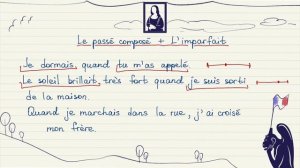 Le passé composé + L'imparfait
Je dormais, quand tu m'as appelé.
Le soleil brillait, très fort quand je suis sorti
de la maison.
Quand je marchais dans la rue, j'ai croisé
mon frère.